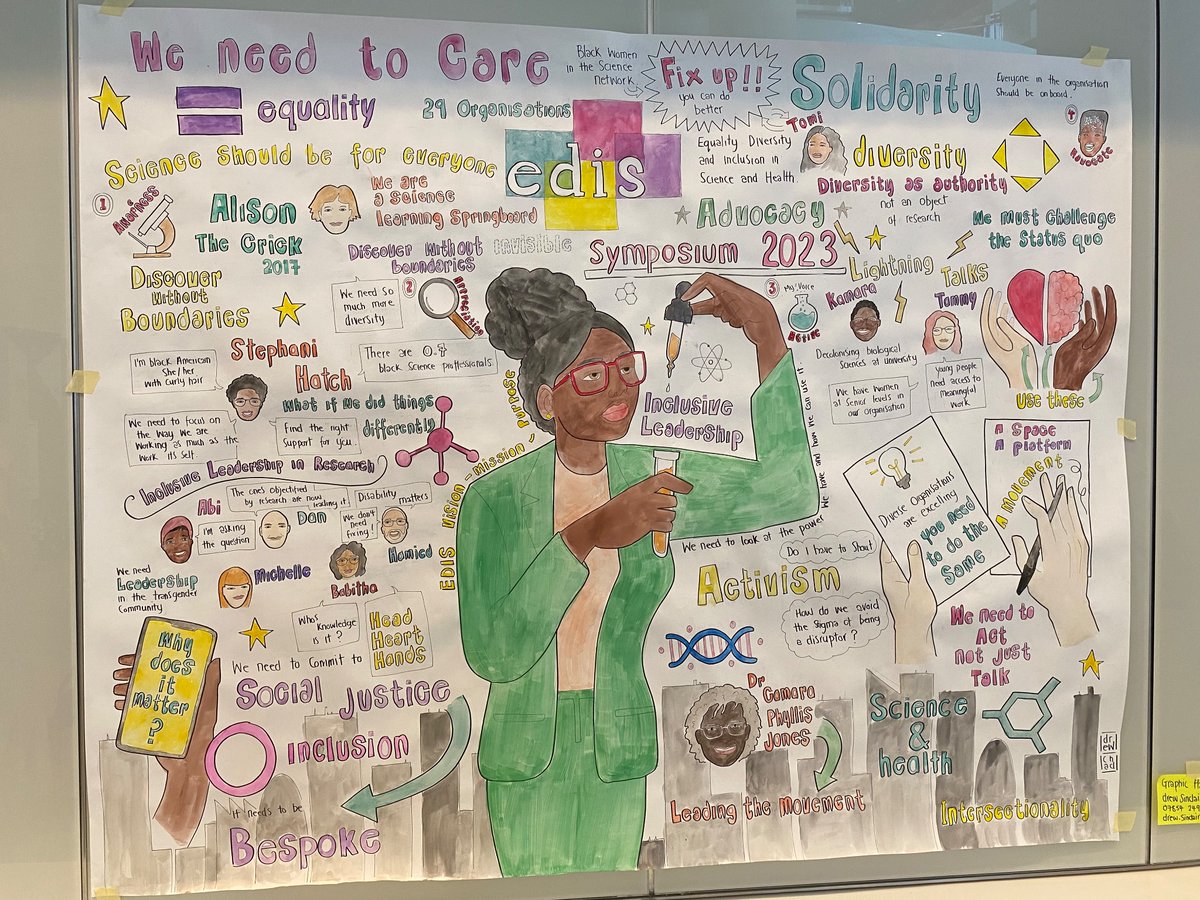 We need to Care
Black Women
in the Science
network
Fix up!!
you can do
better
Solidarity
Everyone in the organisation
Should be on board.
equality
29 Organisations
edis
Science Should be for everyone
Tomi
Equality Diversity
and inclusion in
Science and Health
diversity
Advocate
Diversity as authority
not an object
of research
1
Awareness
Alison
The Crick
2017
We are
a Science
Learning Springboard
Advocacy
We must Challenge
the Status quo
Discover without
boundaries
Invisible
Symposium 2023
Lightning
Talks
Discover
Without
Boundaries
We need So
much more
diversity
2
3
Active
Kamara
Tommy
Decolonising biological
Sciences at university
Stephani
Hatch
There are 0.4
black Science proffessionals
I'm black American
She/her
with curly hair
We have women
at Senior levels in
our organisation
young people
need access to
meaningful
work
Use these
What if we did things
differently
We need to focus on
the way we are
working as much as the
work its self.
Find the right
Support for you.
Inclusive
Leadership
EDIS Vision - Mission - Purpose
We need to look at the power we have and how we can use it
Inclusive Leadership in Research
A Space
A platform
A Movement
Diverse Organisations
are excelling
you need
to do the
Same
Abi
The ones objectified
by research are now leading it
Disability
matters
I'm asking
the question
Dan
We don't
need
fixing!
Hamied
Michelle
Babitha
We need
Leadership
in the transgender
Community
Do I have to Shout
Activism
How do we avoid
the Stigma of being
a disruptor?
Whos
Knowledge
is it?
Head
Heart
Hands
We need to
Act
not Just
Talk
Why
does
it
matter
?
We need to Commit to
Social Justice
Inclusion
It needs to be
Bespoke
Dr
Camara
Phyllis
Jones
Leading the Movement
Science
&
health
Intersectionality
Graphic
drew.Sinclair
drew.Sinclair